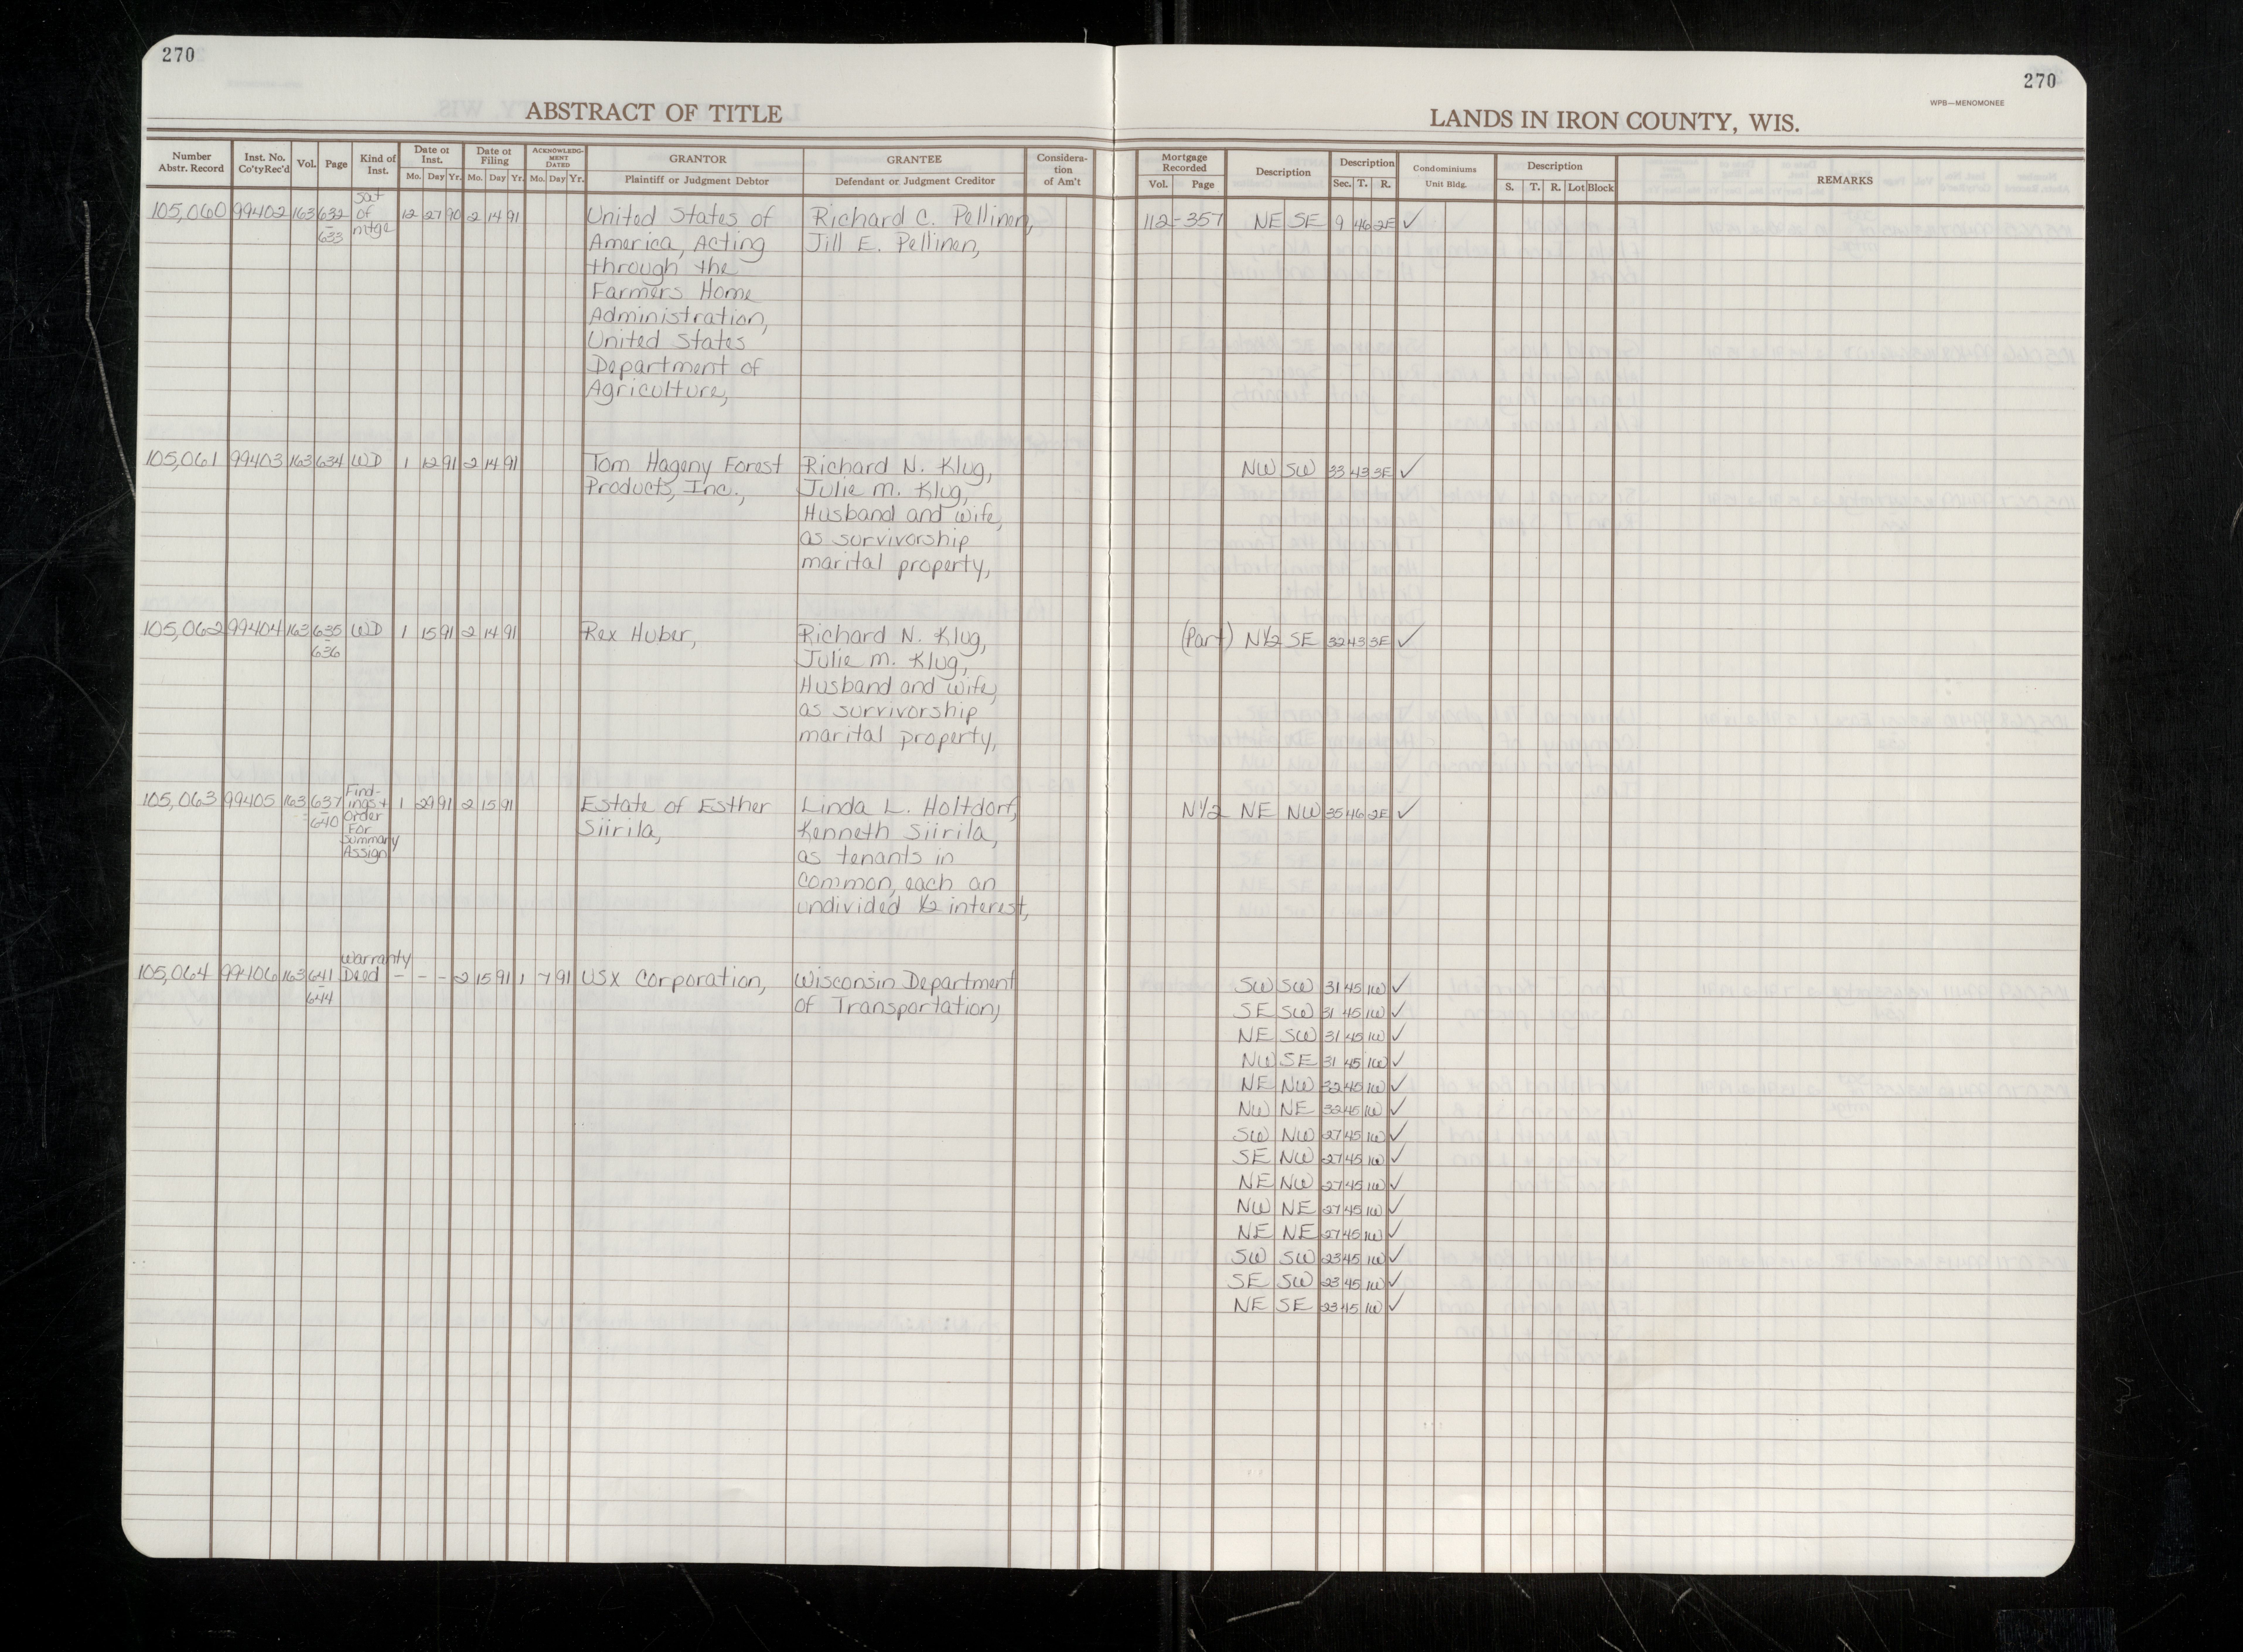 270
270
WPB—MENOMONEE
ABSTRACT OF TITLE
LANDS IN IRON COUNTY, WIS.
Number Abstr. Record | Inst. No. Co'tyRec'd | Vol. | Page | Kind of Inst. | Date of Inst. Mo. Day Yr. | Date of Filing Mo. Day Yr. | ACKNOWLEDG-MENT DATED Mo. Day Yr. | GRANTOR Plaintiff or Judgment Debtor | GRANTEE Defendant or Judgment Creditor | Considera-tion of Am't | Mortgage Recorded Vol. Page | Description | Description Sec. T. R. | Condominiums Unit Bldg. | Description S. T. R. Lot Block | REMARKS
105,060 99402 163 632 - 633 Sat of mtge 12 27 90 2 14 91 United States of Richard C. Pellinen, 112-357 NE SE 9 46 2E ✓
America, Acting Jill E. Pellinen,
through the
Farmers Home
Administration,
United States
Department of
Agriculture,
105,061 99403 163 634 WD 1 12 91 2 14 91 Tom Hageny Forest Richard N. Klug, NW SW 33 43 3E ✓
Products, Inc., Julie M. Klug,
Husband and wife,
as survivorship
marital property,
105,062 99404 163 635 - 636 WD 1 15 91 2 14 91 Rex Huber, Richard N. Klug, (Part) N1/2 SE 32 43 3E ✓
Julie M. Klug,
Husband and wife,
as survivorship
marital property,
105,063 99405 163 637 - 640 Find-ings + Order For Summary Assign 1 29 91 2 15 91 Estate of Esther Linda L. Holtdorf, N1/2 NE NW 35 46 2E ✓
Siirila, Kenneth Siirila,
as tenants in
common, each an
undivided 1/2 interest,
105,064 99406 163 641 - 644 Warranty Deed - - - 2 15 91 1 7 91 USX Corporation, Wisconsin Department SW SW 31 45 1W ✓
of Transportation, SE SW 31 45 1W ✓
NE SW 31 45 1W ✓
NW SE 31 45 1W ✓
NE NW 32 45 1W ✓
NW NE 32 45 1W ✓
SW NW 27 45 1W ✓
SE NW 27 45 1W ✓
NE NW 27 45 1W ✓
NW NE 27 45 1W ✓
NE NE 27 45 1W ✓
SW SW 23 45 1W ✓
SE SW 23 45 1W ✓
NE SE 23 45 1W ✓